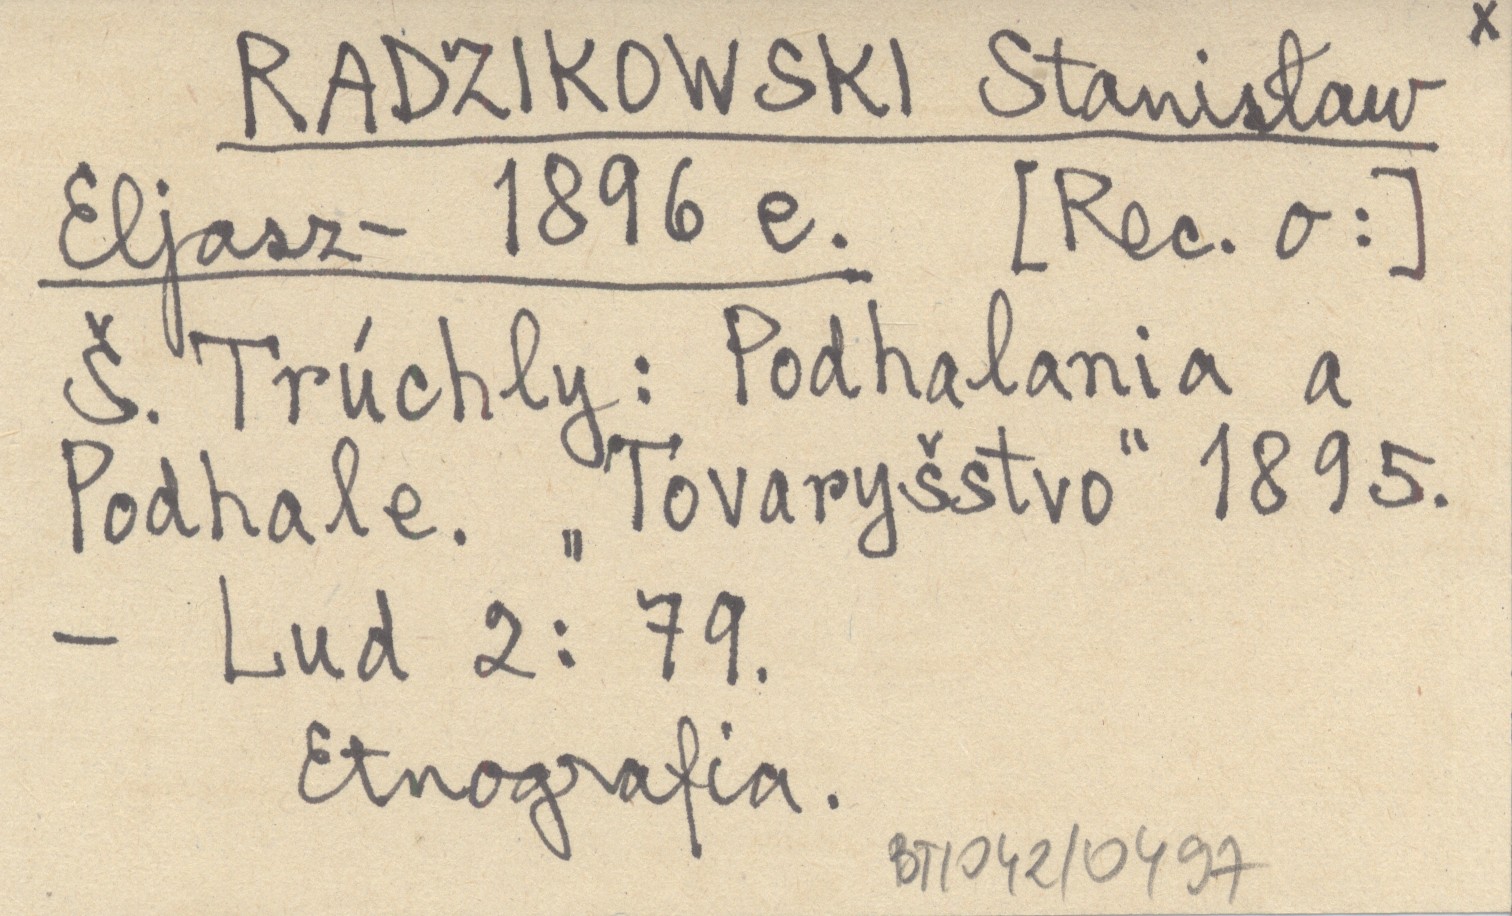 x
RADZIKOWSKI Stanisław
Eljasz- 1896 e. [Rec. o:]
Š. Trúchly: Podhalania a
Podhale. „Tovaryšstvo“ 1895.
— Lud 2: 79.
Etnografia.
BT/042/0497